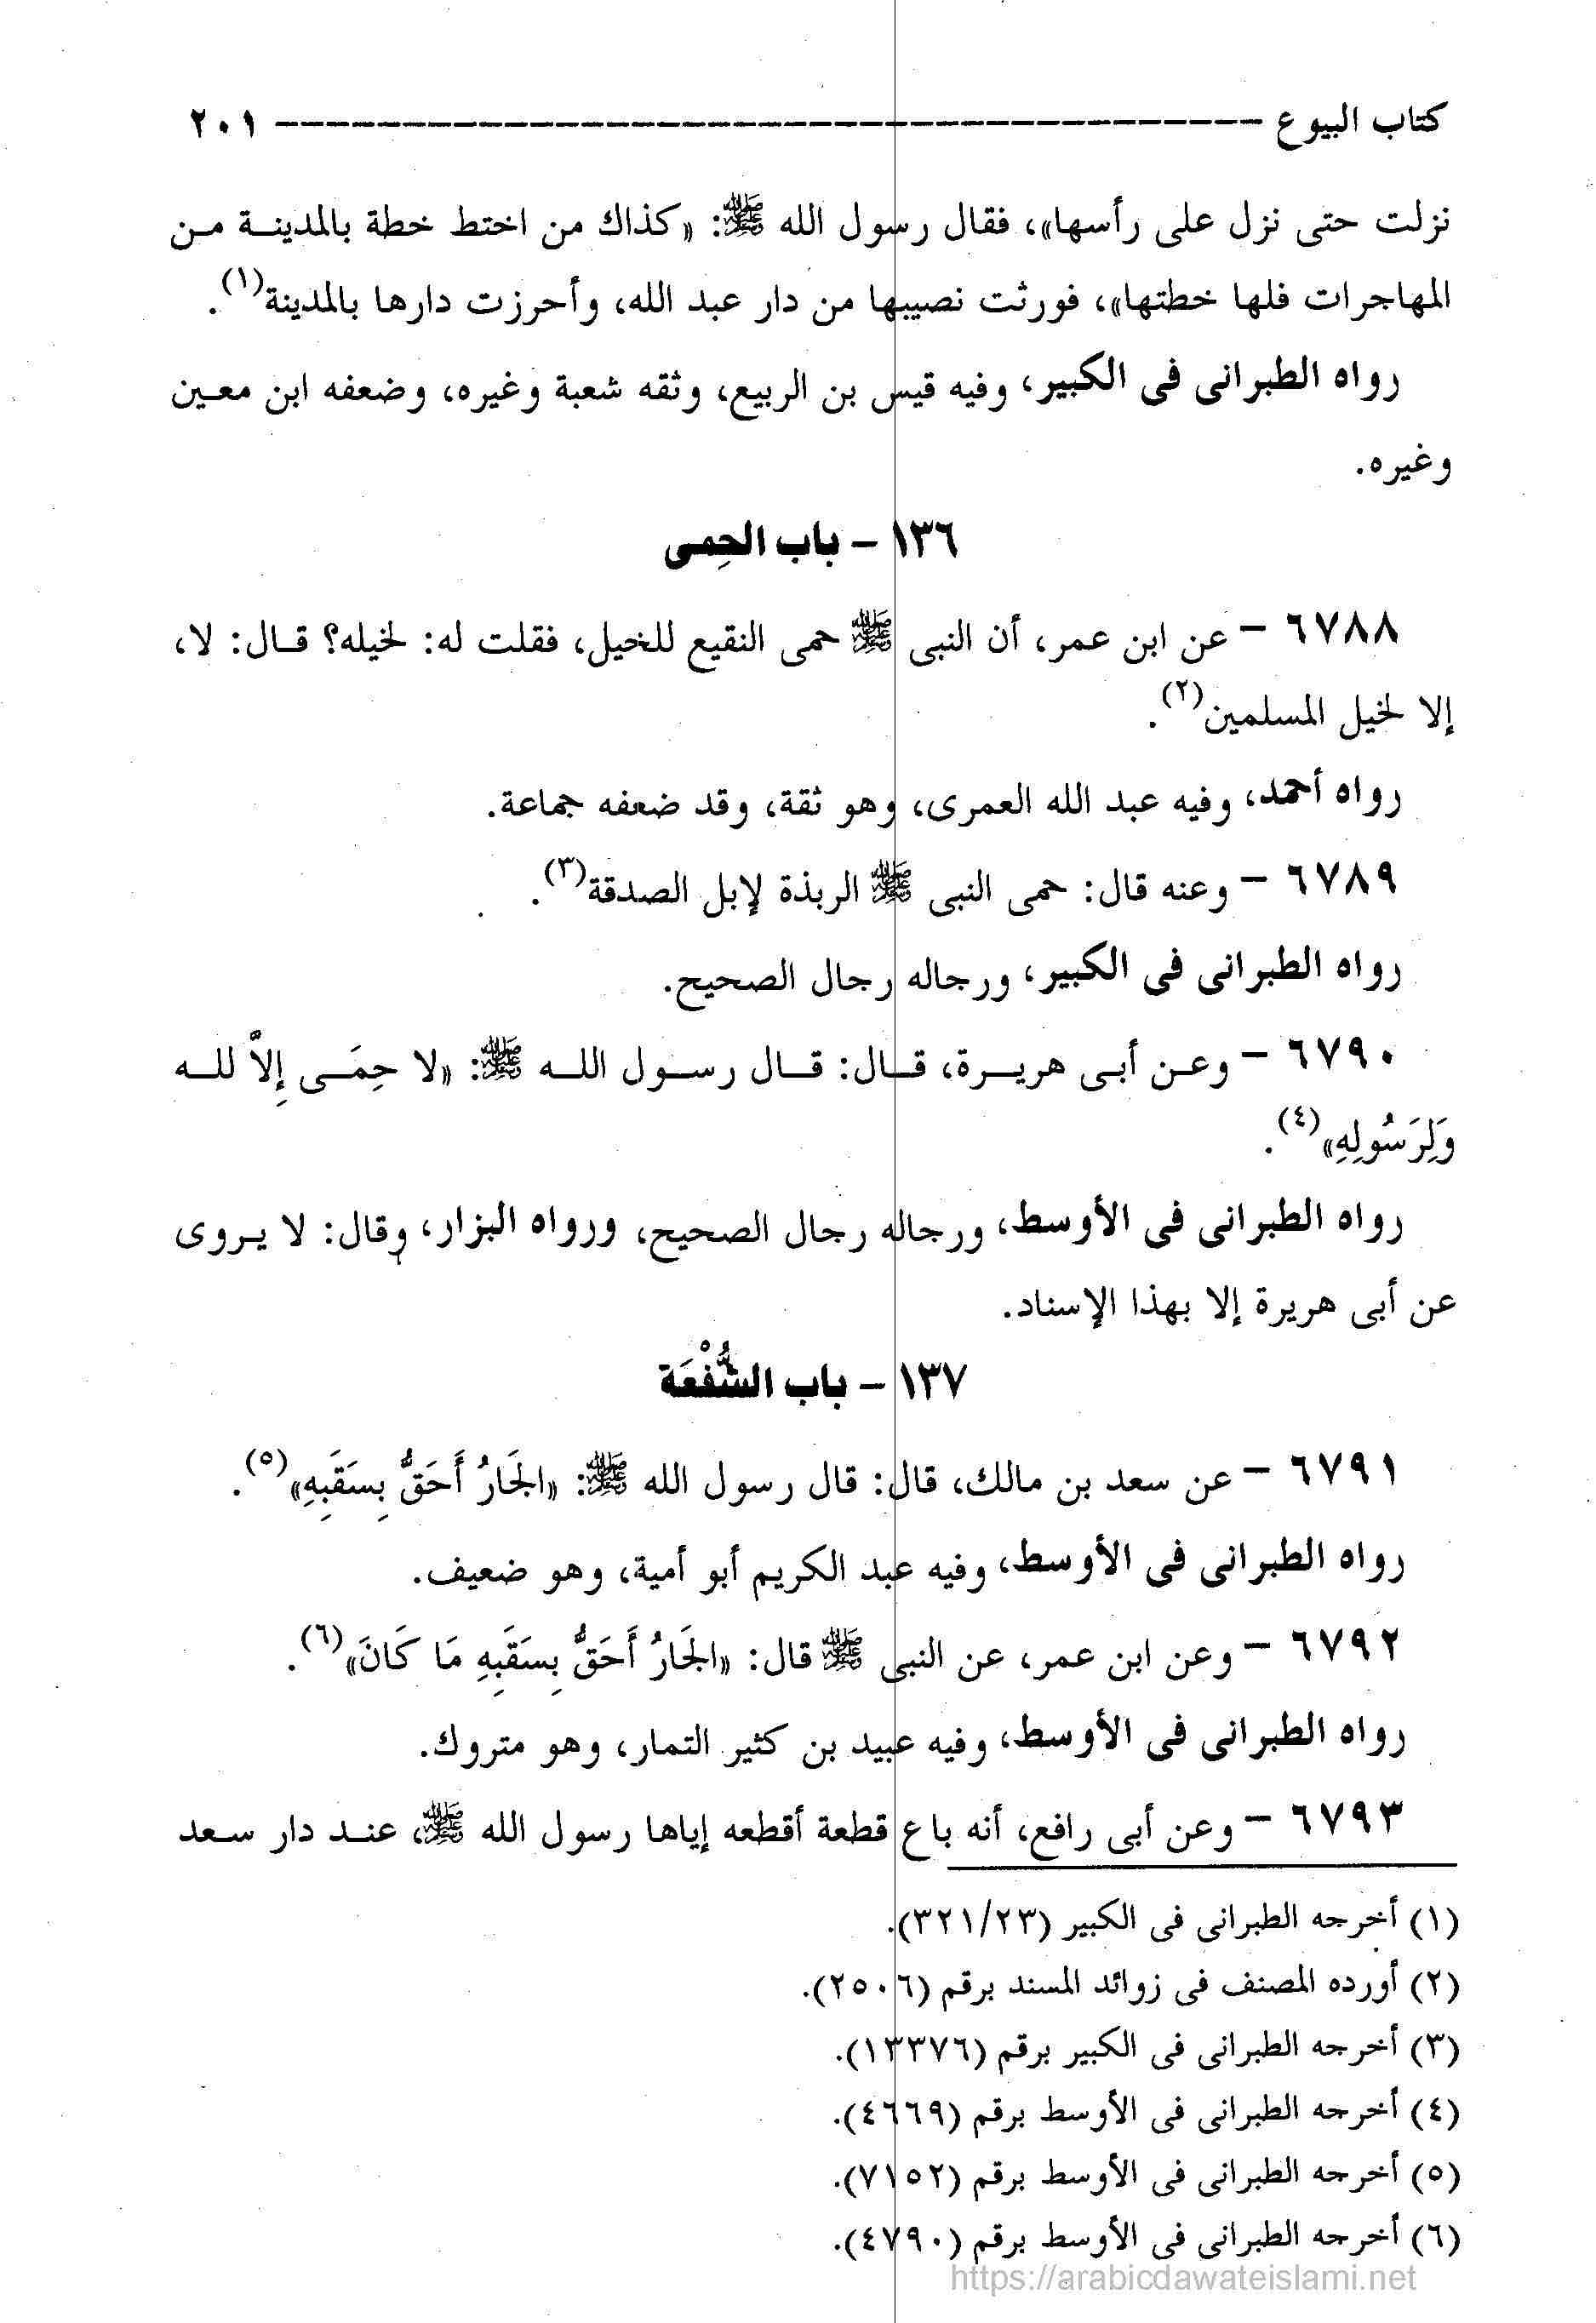 كتاب البيوع ---------------------------------------- ٢٠١
نزلت حتى نزل على رأسها»، فقال رسول الله ﷺ: «كذاك من اختط خطة بالمدينـة مـن
المهاجرات فلها خطتها»، فورثت نصيبها من دار عبد الله، وأحرزت دارها بالمدينة(١).
رواه الطبرانى فى الكبير، وفيه قيس بن الربيع، وثقه شعبة وغيره، وضعفه ابن معـين
وغيره.
١٣٦ - باب الحِمـى
٦٧٨٨ - عن ابن عمر، أن النبى ﷺ حمى النقيع للخيل، فقلت له: لخيله؟ قـال: لا،
إلا لخيل المسلمين(٢).
رواه أحمد، وفيه عبد الله العمرى، وهو ثقة، وقد ضعفه جماعة.
٦٧٨٩ - وعنه قال: حمى النبى ﷺ الربذة لإبل الصدقة(٣).
رواه الطبرانى فى الكبير، ورجاله رجال الصحيح.
٦٧٩٠ - وعـن أبـى هريـرة، قـال: قـال رسـول اللـه ﷺ: «لا حِمَـى إِلاَّ للـه
وَلِرَسُولِهِ»(٤).
رواه الطبرانى فى الأوسط، ورجاله رجال الصحيح، ورواه البزار، وقال: لا يـروى
عن أبى هريرة إلا بهذا الإسناد.
١٣٧ - باب الشُّفْعَة
٦٧٩١ - عن سعد بن مالك، قال: قال رسول الله ﷺ: «الجَارُ أَحَقُّ بِسَقَبِهِ»(٥).
رواه الطبرانى فى الأوسط، وفيه عبد الكريم أبو أمية، وهو ضعيف.
٦٧٩٢ - وعن ابن عمر، عن النبى ﷺ قال: «الجَارُ أَحَقُّ بِسَقَبِهِ مَا كَانَ»(٦).
رواه الطبرانى فى الأوسط، وفيه عبيد بن كثير التمار، وهو متروك.
٦٧٩٣ - وعن أبى رافع، أنه باع قطعة أقطعه إياها رسول الله ﷺ، عنـد دار سـعد
(١) أخرجه الطبرانى فى الكبير (٣٢١/٢٣).
(٢) أورده المصنف فى زوائد المسند برقم (٢٥٠٦).
(٣) أخرجه الطبرانى فى الكبير برقم (١٣٣٧٦).
(٤) أخرجه الطبرانى فى الأوسط برقم (٤٦٦٩).
(٥) أخرجه الطبرانى فى الأوسط برقم (٧١٥٢).
(٦) أخرجه الطبرانى فى الأوسط برقم (٤٧٩٠).
https://arabicdawateislami.net